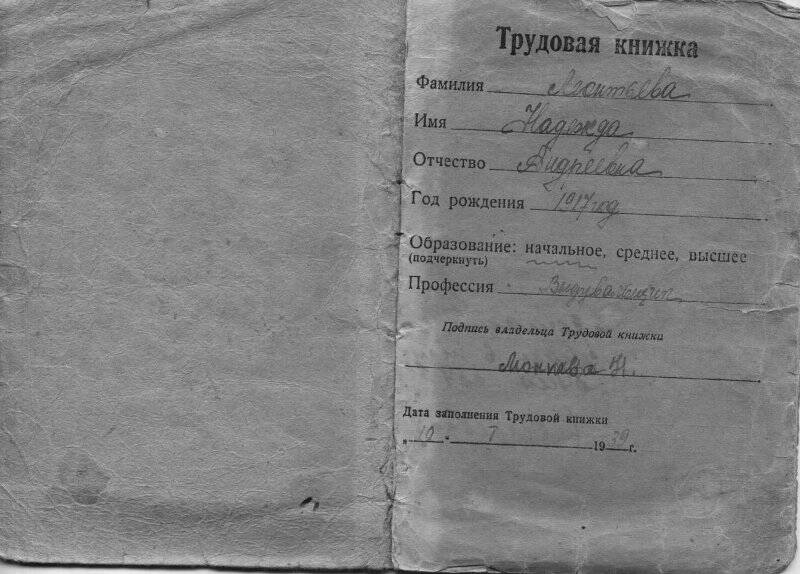 Трудовая книжка
Фамилия Леонтьева
Имя Надежда
Отчество Андреевна
Год рождения 1917 год
Образование: начальное, среднее, высшее
(подчеркнуть)
Профессия
Подпись владельца Трудовой книжки
Н.
Дата заполнения Трудовой книжки
„ 10 " 7 1939 г.